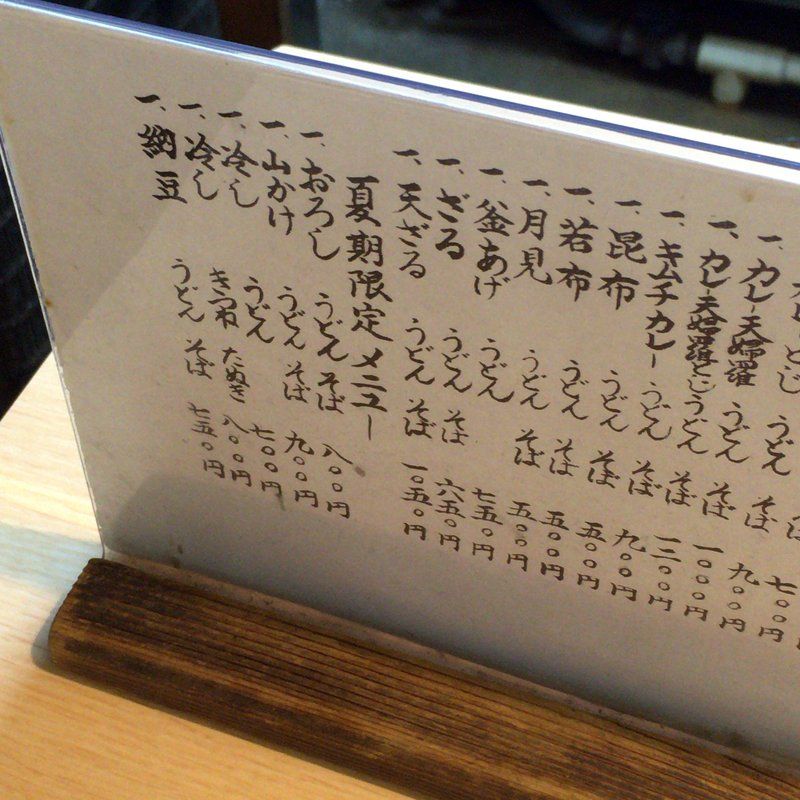 とじ うどん そば
一、カレー天婦羅 うどん そば 一〇〇〇円
一、カレー天婦羅とじ うどん そば 円
一、キムチカレー うどん そば 九〇〇円
一、昆布 うどん そば 五〇〇円
一、若布 うどん そば 五〇〇円
一、月見 うどん そば 五〇〇円
一、釜あげ うどん 七五〇円
一、ざる うどん そば 六五〇円
一、天ざる うどん そば 一〇五〇円
夏期限定メニュー
一、おろし うどん そば 八〇〇円
一、山かけ うどん そば 九〇〇円
一、冷し うどん 七〇〇円
一、冷し きつね たぬき 八〇〇円
一、納豆 うどん そば 七五〇円